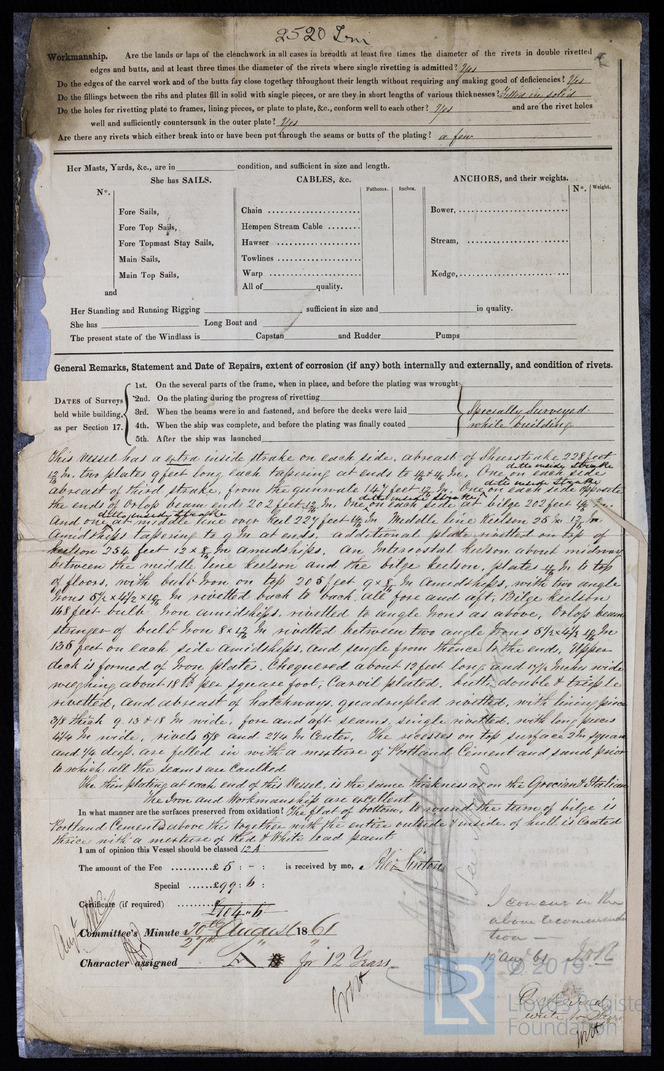 2520 Iron
Workmanship. Are the lands or laps of the clenchwork in all cases in breadth at least five times the diameter of the rivets in double rivetted
edges and butts, and at least three times the diameter of the rivets where single rivetting is admitted? Yes
Do the edges of the carvel work and of the butts fay close together throughout their length without requiring any making good of deficiencies? Yes
Do the fillings between the ribs and plates fill in solid with single pieces, or are they in short lengths of various thicknesses? Filled in solid
Do the holes for rivetting plate to frames, lining pieces, or plate to plate, &c., conform well to each other? Yes and are the rivet holes
well and sufficiently countersunk in the outer plate? Yes
Are there any rivets which either break into or have been put through the seams or butts of the plating? a few
Her Masts, Yards, &c., are in condition, and sufficient in size and length.
She has SAILS. CABLES, &c. ANCHORS, and their weights.
N°. Fathoms. Inches. N°. Weight.
Fore Sails, Chain Bower,
Fore Top Sails, Hempen Stream Cable
Fore Topmast Stay Sails, Hawser Stream,
Main Sails, Towlines
Main Top Sails, Warp Kedge,
and All of quality.
Her Standing and Running Rigging sufficient in size and in quality.
She has Long Boat and
The present state of the Windlass is Capstan and Rudder Pumps
General Remarks, Statement and Date of Repairs, extent of corrosion (if any) both internally and externally, and condition of rivets.
DATES of Surveys held while building, as per Section 17.
1st. On the several parts of the frame, when in place, and before the plating was wrought
2nd. On the plating during the progress of rivetting
3rd. When the beams were in and fastened, and before the decks were laid
4th. When the ship was complete, and before the plating was finally coated
5th. After the ship was launched
Specially Surveyed
while building
This Vessel has a extra inside strake on each side, abreast of Sheerstrake 228 feet
In. two plates 9 feet long each tapering at ends to In. One on each side
ditto inside strake
abreast of third strake, from the gunwale 147 feet In. One on each side opposite
ditto inside strake
the ends of Orlop beam ends 202 feet In. One on each side at bilge 202 feet In.
ditto inside strake
And one at middle line over Keel 227 feet In. Middle line Keelson 25 In.
ditto inside strake
Amidships tapering to 9 In at ends. additional plate rivetted on top of
keelson 254 feet 12 x In amidships. An Intercostal Keelson about midway
between the middle line keelson and the bilge keelson, plates In to top
of floors, with bulb Iron on top 205 feet 9 x In Amidships, with two angle
Irons 5½ x 4½ x In rivetted back to back, all fore and aft; Bilge keelson
168 feet bulb Iron amidships, rivetted to angle Irons as above, Orlop beam
stringer of bulb Iron 8 x In rivetted between two angle Irons 5½ x 4½ In
135 feet on each side amidships, and single from thence to the ends, Upper
deck is formed of Iron plates, Chequered about 12 feet long and Inches wide
weighing about 18 lb per square foot, Carvil plated, butts double & treeple
rivetted, and abreast of hatchways, quadrupled rivetted, with lining pieces
3/8 thick 9. 13 & 18 In wide, fore and aft seams, single rivetted, with long pieces
4¾ In wide, rivets 5/8 and 2¼ In Centre, The recesses on top surface 2 In square
and ¼ deep, are felled in with a mixture of Portland Cement and sand prior
to which all the seams are Caulked
The thin plating at each end of this Vessel, is the same thickness as on the Grecian & Italian
The Iron and Workmanship are excellent
In what manner are the surfaces preserved from oxidation? The flat of bottom, to round the turn of bilge is
Portland Cement & above this together with the entire outside & inside of hull is Coated
thrice with a mixture of Red & White lead paint
I am of opinion this Vessel should be classed 12 A
The amount of the Fee £5 : - : is received by me,
Special £99 : 6 :
Certificate (if required)
£104 " 6
Committee's Minute 20th August 1861
27th " "
Character assigned A for 12 Years
I concur in the
above recommenda-
tion
19 Aug 61
© 2019
LR
Lloyd's Register
Foundation